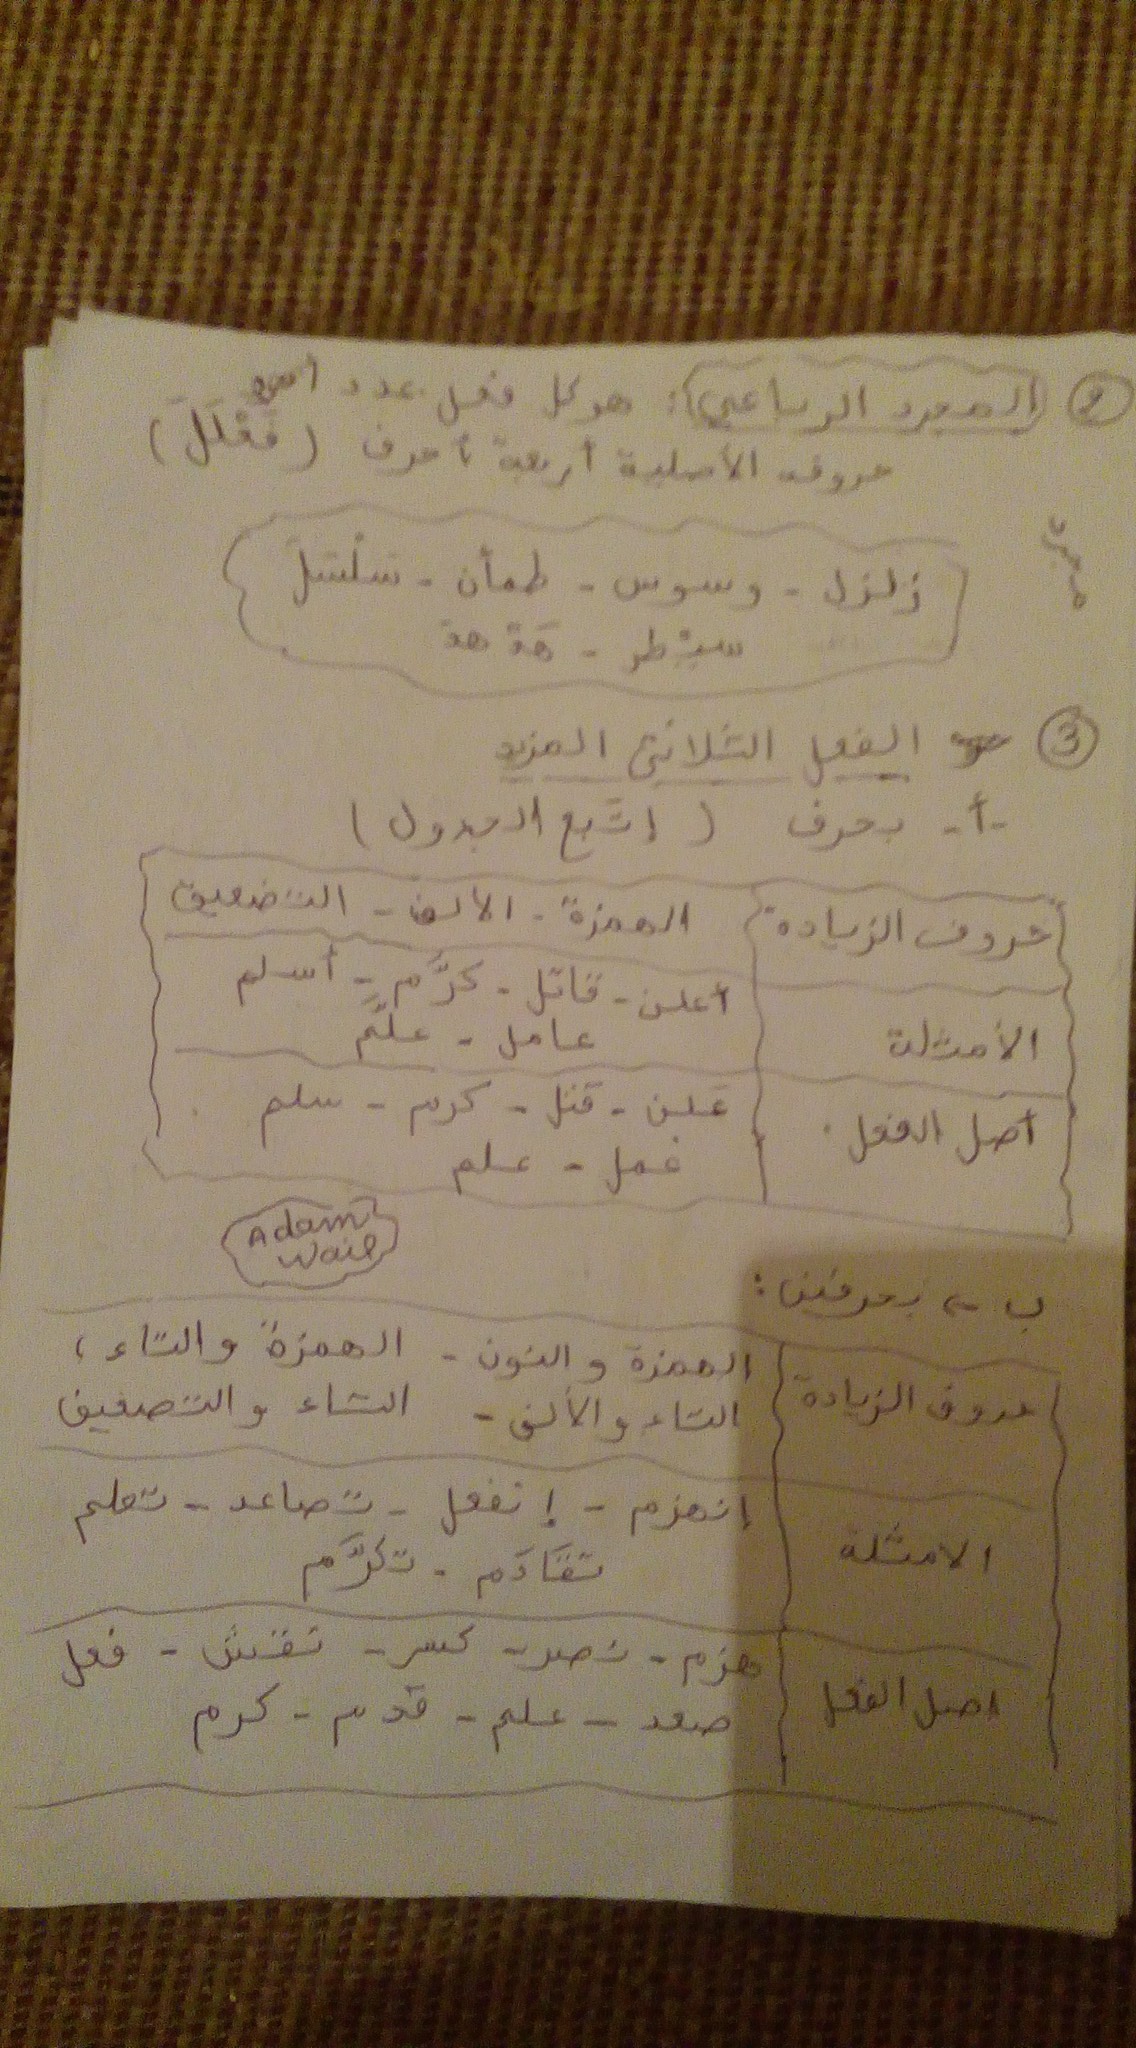 ② المجرد الرباعي: هو كل فعل عدد
حروفه الأصلية أربعة أحرف (فَعْلَلَ)
زلزل - وسوس - طمأن - سَلْسَلَ
سيْطر - هَدْهدَ
③ الفعل الثلاثي المزيد
-أ- بحرف (إتَبع الجدول)
حروف الزيادة الهمزة - الألف - التضعيف
الأمثلة أعلن - قاتل - كرَّم - أسلم
عامل - علَّم
أصل الفعل علن - قتل - كرم - سلم
عمل - علم
Adam
Wail
ب - بحرفين:
حروف الزيادة الهمزة والنون - الهمزة والتاء،
التاء والألف - التاء والتضعيف
الامثلة إنهزم - إنفعل - تصاعد - تعلم
تقَادَم - تكرَّم
اصل الفعل هزم - نصر - كسر - نقش - فعل
صعد - علم - قدم - كرم